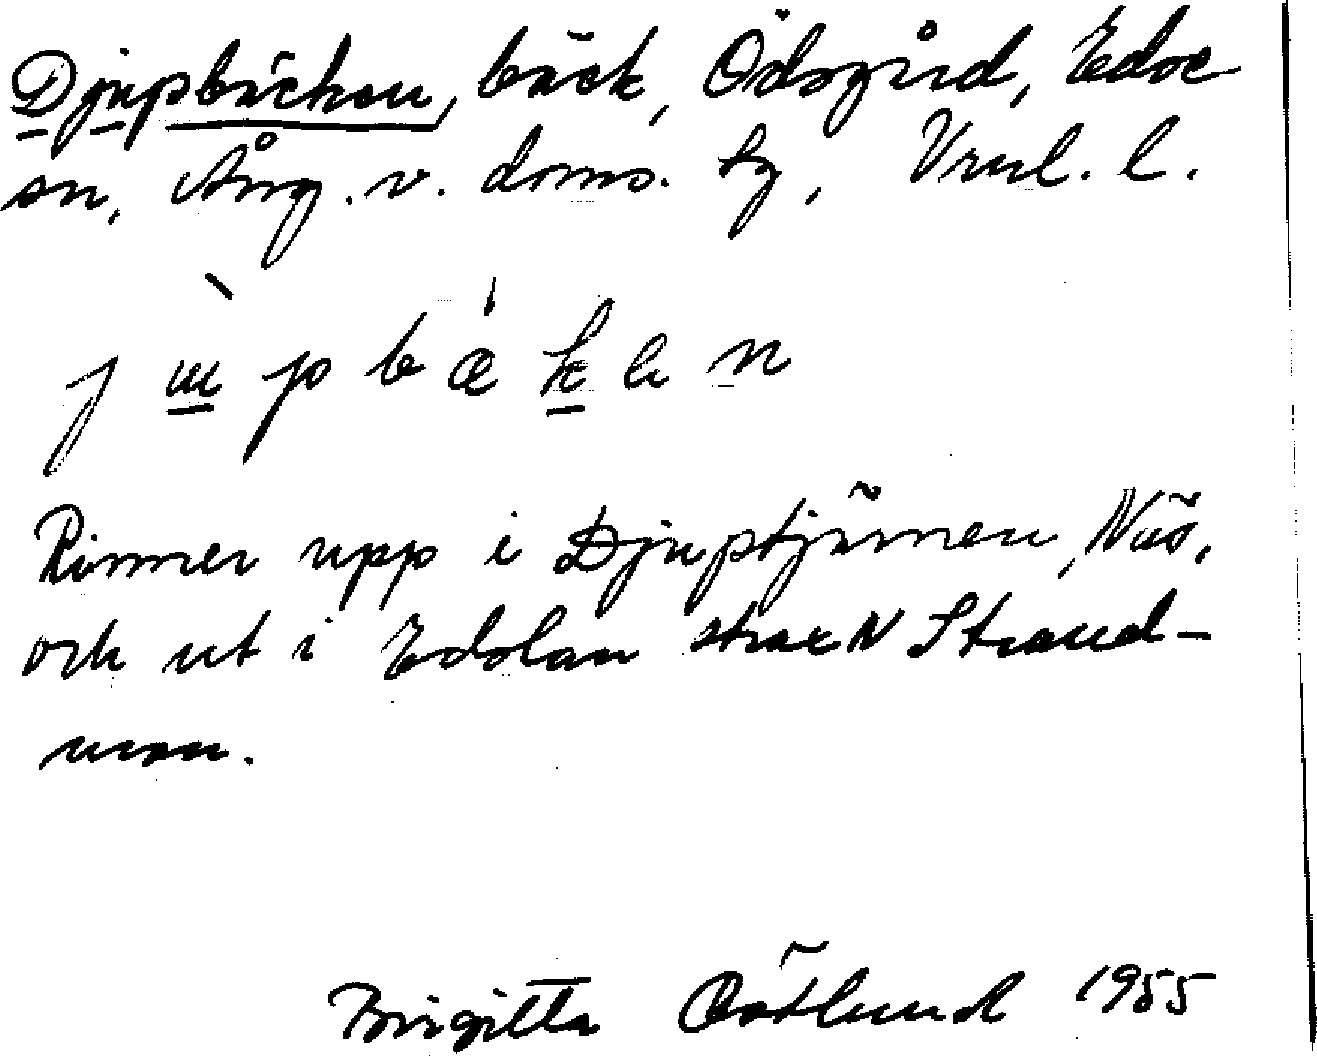 Djupbäcken, bäck, Ödsgård, Edse
sn, Ång. v. doms. tg, Vnl. l.
j u p b æ k e n
Rinner upp i Djuptjärnen, Näs,
och ut i Edslan strax N Strand-
mon.
Birgitta Östlund 1955